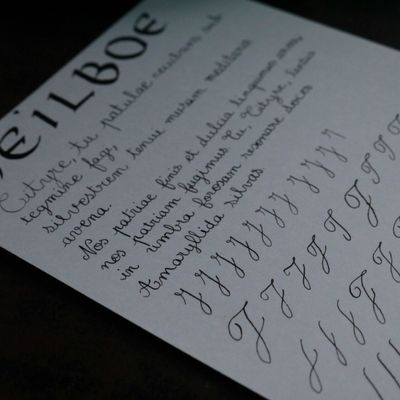 EILBOE
Tityre, tu patulae recubans sub
tegmine fagi,
silvestrem tenui musam meditaris
avena.
Nos patriae fines et dulcia linquimus arva,
nos patriam fugimus. Tu, Tityre, lentus
in umbra formosam resonare doces
Amaryllida silvas